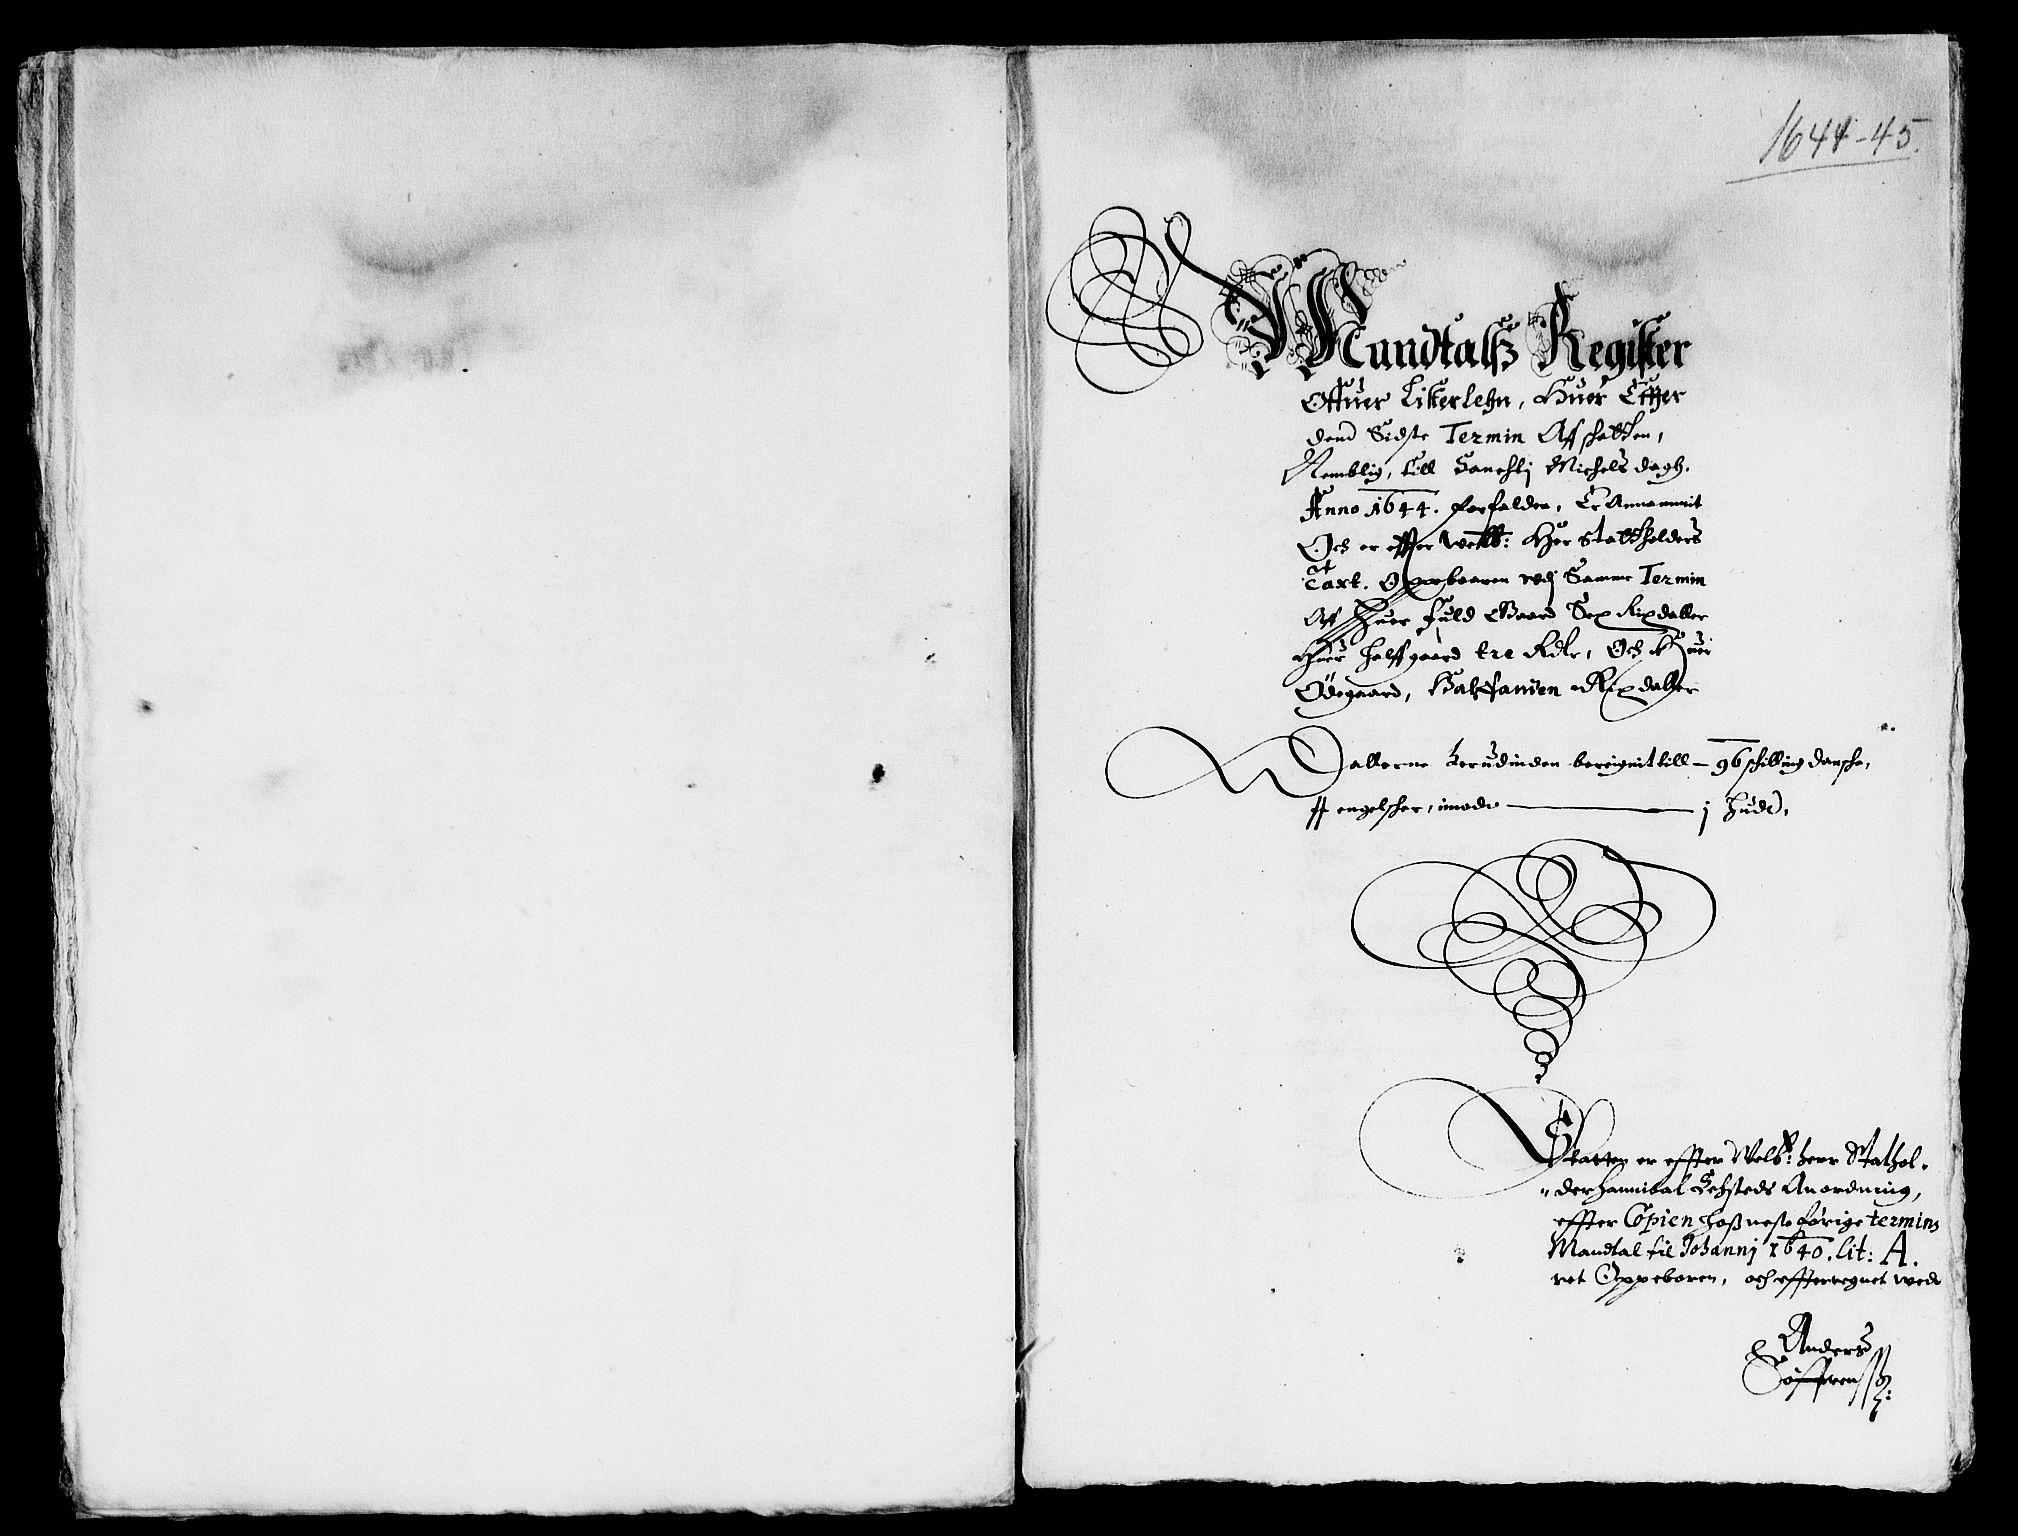 1644-45.
Mandtalsz Register
Offuer Listerlehn, Huor Effter
dend Sidste Termin Aff skatten,
Nemblig, till Sanchtj Michels dagh.
Anno 1644. forfalden, Er Annammit
Och er effter Welb: Her Statholders
Taxt. Oppebaaren vdj Samme Termin
Aff Huer fuld Gaard Sex Rixdaller
Huer halffgaard tre Rdlr, Och Huer
Ödegaard, Halfanden Rixdaller
Dallerne herudinden bereignit till – 96 schilling danske,
ff engelsker, imode — j hudt,
Skatten er effter Welb: herr Stathol-
der Hannibal Sehsteds Anordning,
effter Copien hosz neste forige termins
Mandtal til Johannj 1640. lit: A.
ret Oppeboren, och effterregnet wed
Anders
Söffrensz: